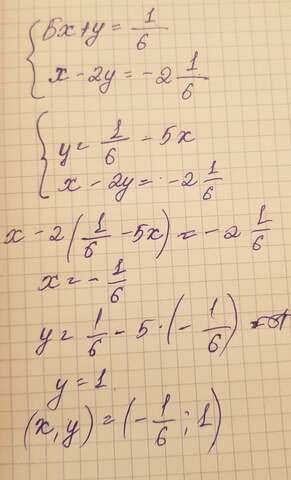 5x+y = 1/6
x - 2y = -2 1/6
y = 1/6 - 5x
x - 2y = -2 1/6
x - 2(1/6 - 5x) = -2 1/6
x = - 1/6
y = 1/6 - 5 · (- 1/6)
y = 1.
(x, y) = (- 1/6 ; 1)